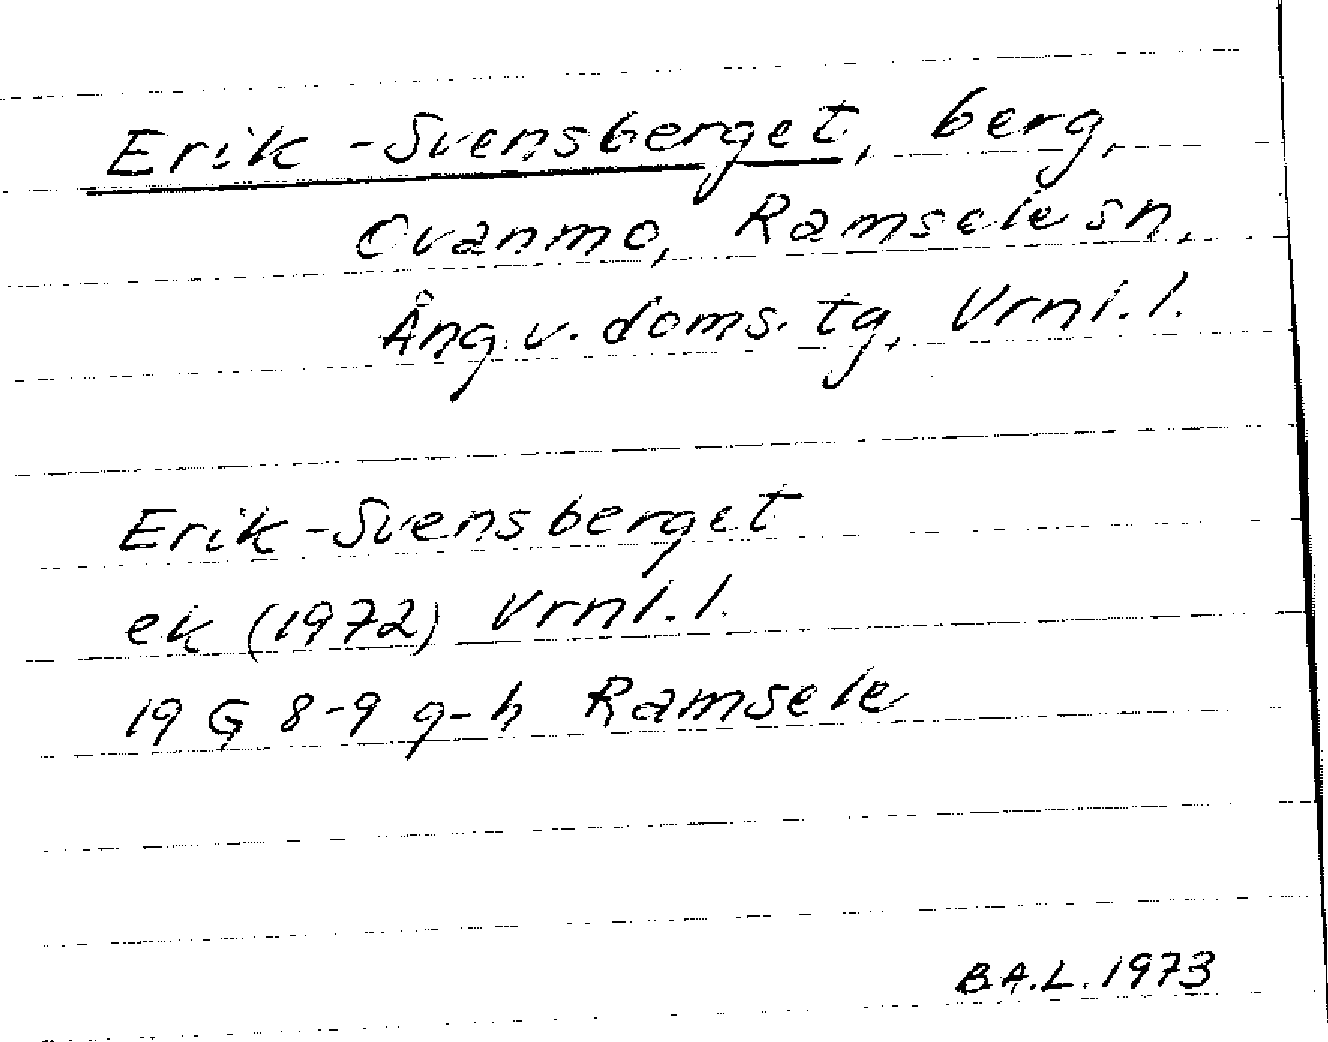 Erik-Svensberget, berg,
Ovanmo, Ramsele sn,
Ång. v. doms. tg, Vrnl. l.
Erik-Svensberget
ek (1972) Vrnl. l.
19 G 8-9 g-h Ramsele
B.A.L. 1973